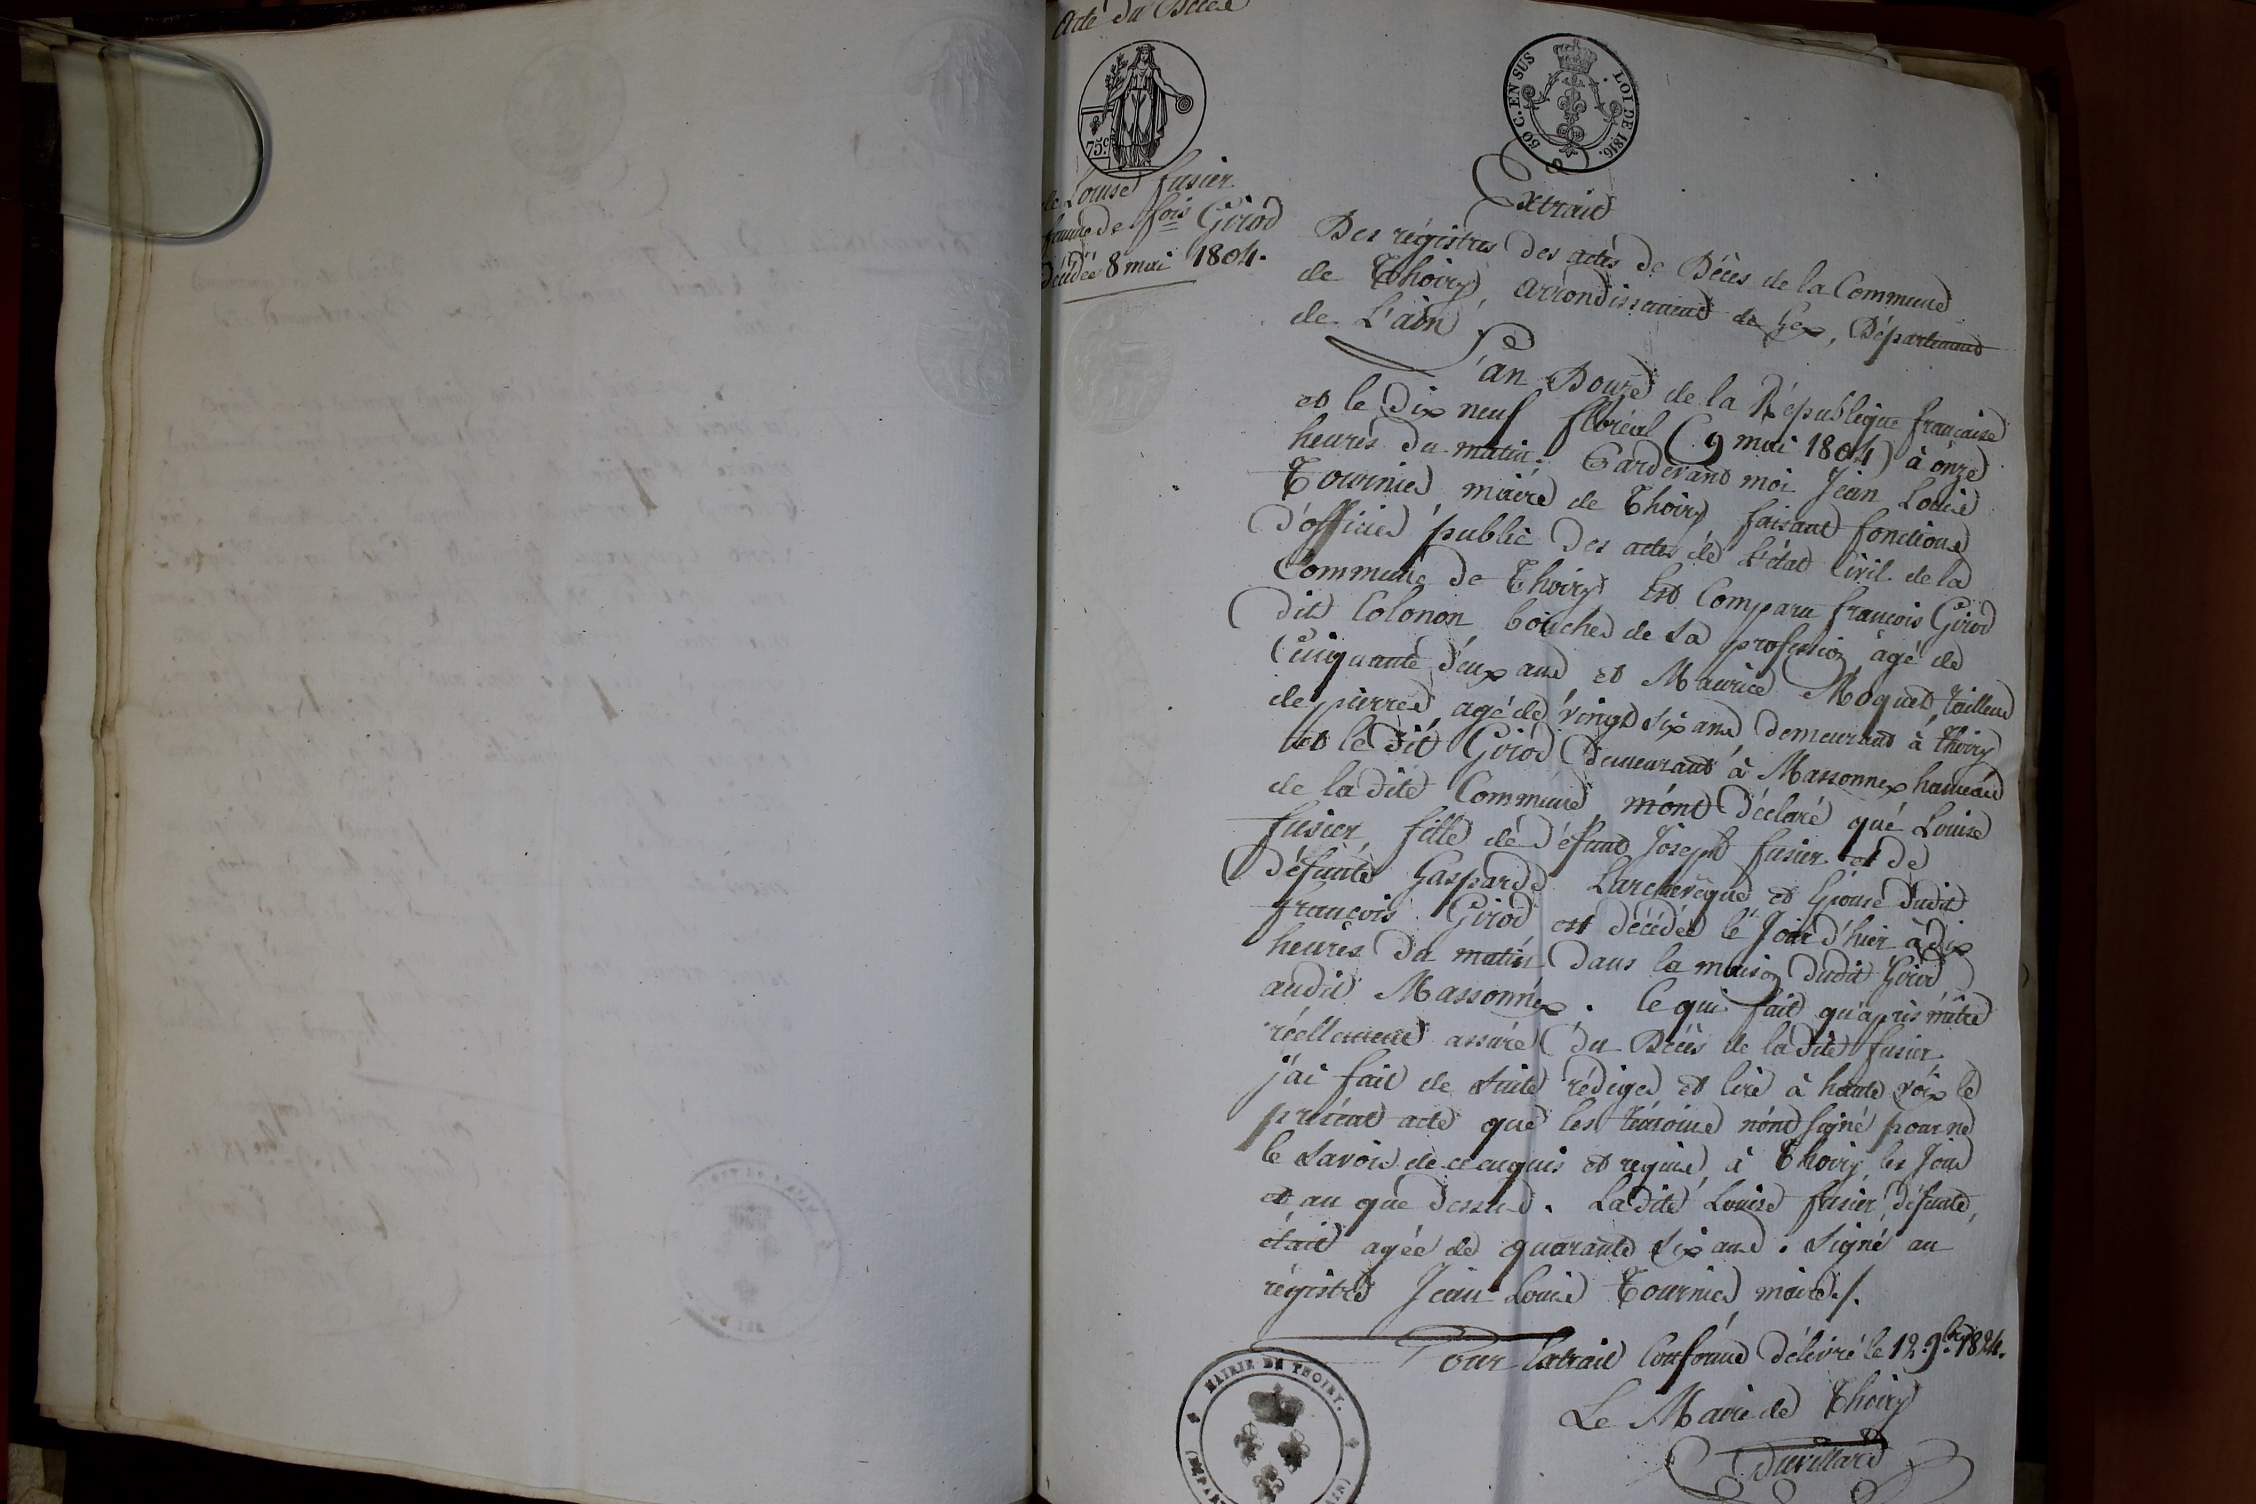 Acte du Décès
75 c.
50 C. EN SUS
LOI DE 1816.
de Louise fusier
femme de fois Girod
décédée 8 mai 1804.
Extrait
Des régistres des actes de Décès de la Commune
de Thoiry, arrondissement de Gex, Département
de L'ain
L'an Douze de la République française
et le dix neuf floréal (9 mai 1804) à onze
heures du matin. Pardevant moi Jean Louis
Tournier maire de Thoiry faisant fonctions
d'officier public des actes de l'état Civil de la
Commune de Thoiry Est Comparu françois Girod
dit Colonon boucher de sa profession agé de
Cinquante deux ans et Maurice Moquet tailleur
de pierres agé de vingt six ans demeurant à thoiry
et le dit Girod demeurant à Massonnex hameau
de la dite Commune m'ont déclaré que Louise
fusier, fille de défunt Joseph fusier et de
défunte Gasparde Larchevêque et Epouse dudit
françois Girod est décédée le Jour d'hier à dix
heures du matin dans la maison dudit Girod
audit Massonnex. Ce qui fait qu'après m'être
réellement assuré du Décès de la dite fusier
j'ai fait de suite rédiger et lire à haute voix le
présent acte que les témoins n'ont signé pour ne
le savoir de ce enquis et requis, à Thoiry les Jour
et an que dessus. La dite Louise fusier défunte,
était agée de quarante six ans. signé au
régistre Jean Louis Tournier maire /.
Pour Extrait Conforme délivré le 12 9bre 1824.
Le Maire de Thoiry
Duvillard
MAIRIE DE THOIRY.